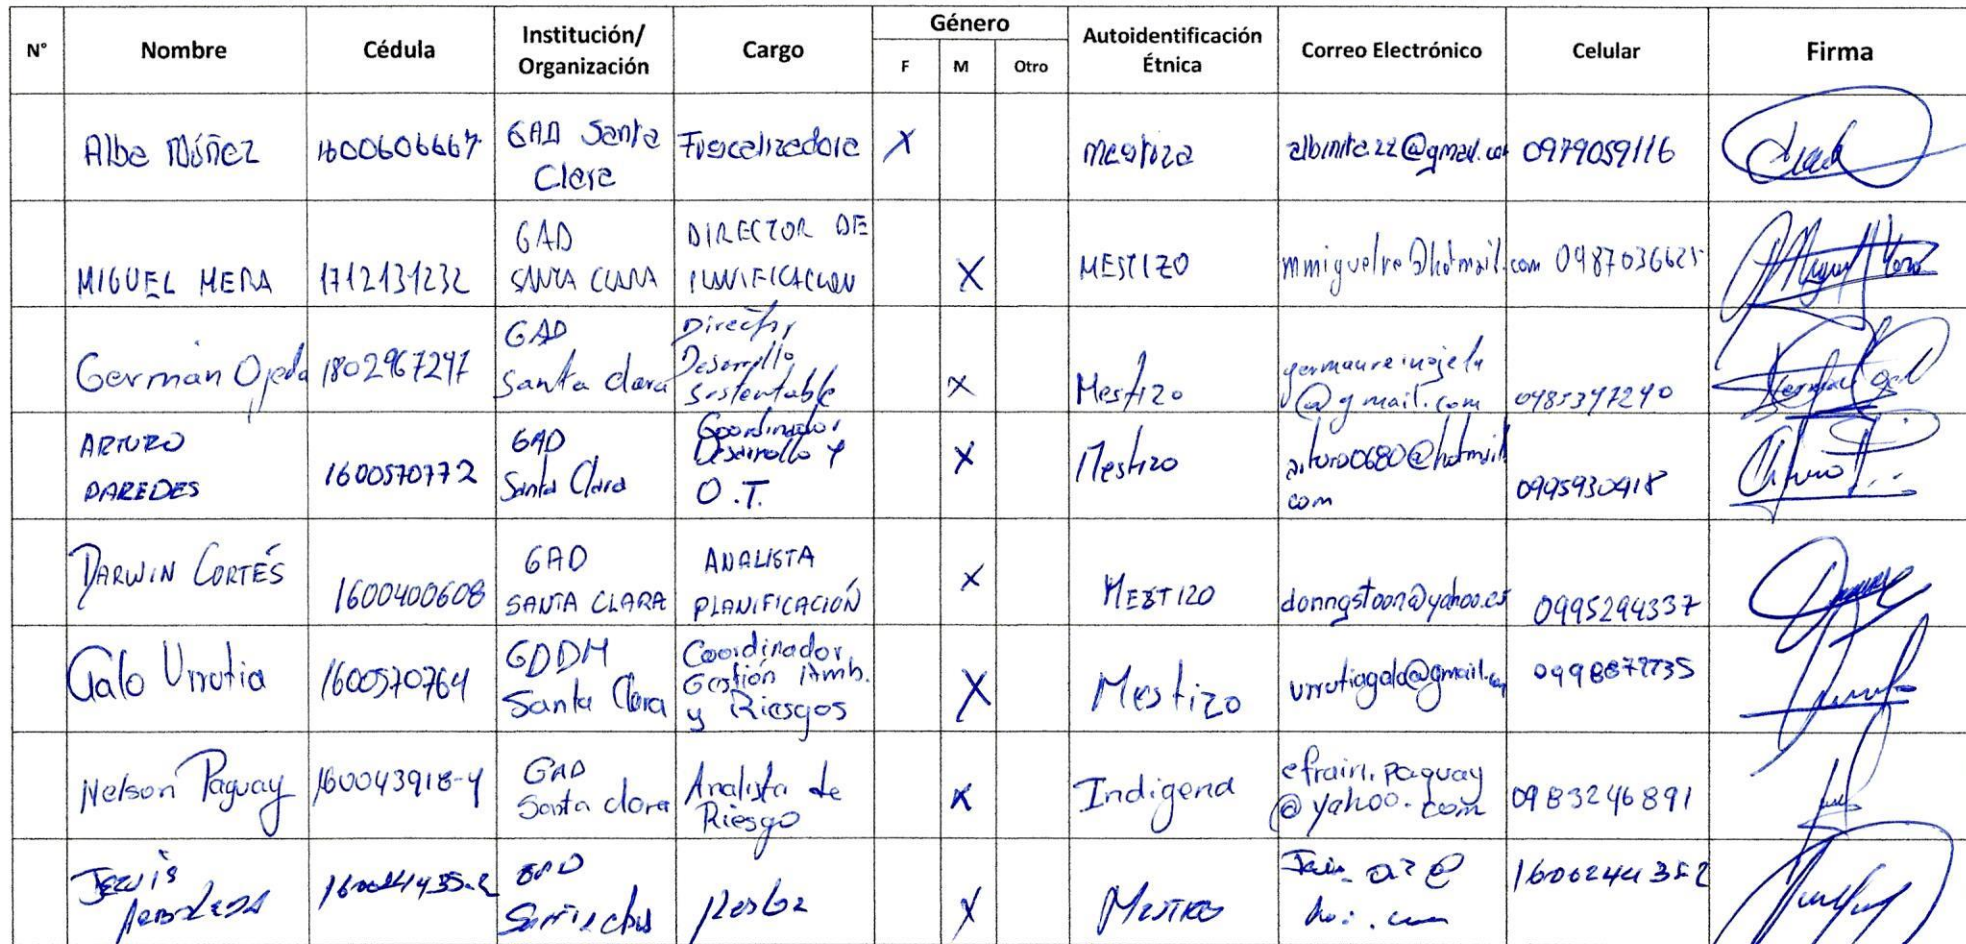 N° Nombre Cédula Institución/ Organización Cargo Género Autoidentificación Étnica Correo Electrónico Celular Firma
F M Otro
Alba Núñez 1600606667 GAD Santa Clara Fiscalizadora X mestiza albinita.22@gmail.com 0979059116
MIGUEL MERA 1712131232 GAD SANTA CLARA DIRECTOR DE PLANIFICACION X MESTIZO mmiguelre@hotmail.com 0987036625
Germán Ojeda 1802967297 GAD Santa clara Director Desarrollo Sustentable X Mestizo @gmail.com 0985397290
ARTURO PAREDES 1600570772 GAD Santa Clara Coordinador Desarrollo y O.T. X Mestizo arturo0680@hotmail com 0995930918
DARWIN CORTÉS 1600400608 GAD SANTA CLARA ANALISTA PLANIFICACIÓN X MESTIZO donngstoon@yahoo.es 0995294337
Galo Urrutia 1600570764 GDDM Santa Clara Coordinador Gestión Amb. y Riesgos X Mestizo urrutiagalo@gmail.com
Nelson Paguay 160043918-4 GAD Santa clara Analista de Riesgo X Indigena efrain.paguay @yahoo.com 0983246891
X